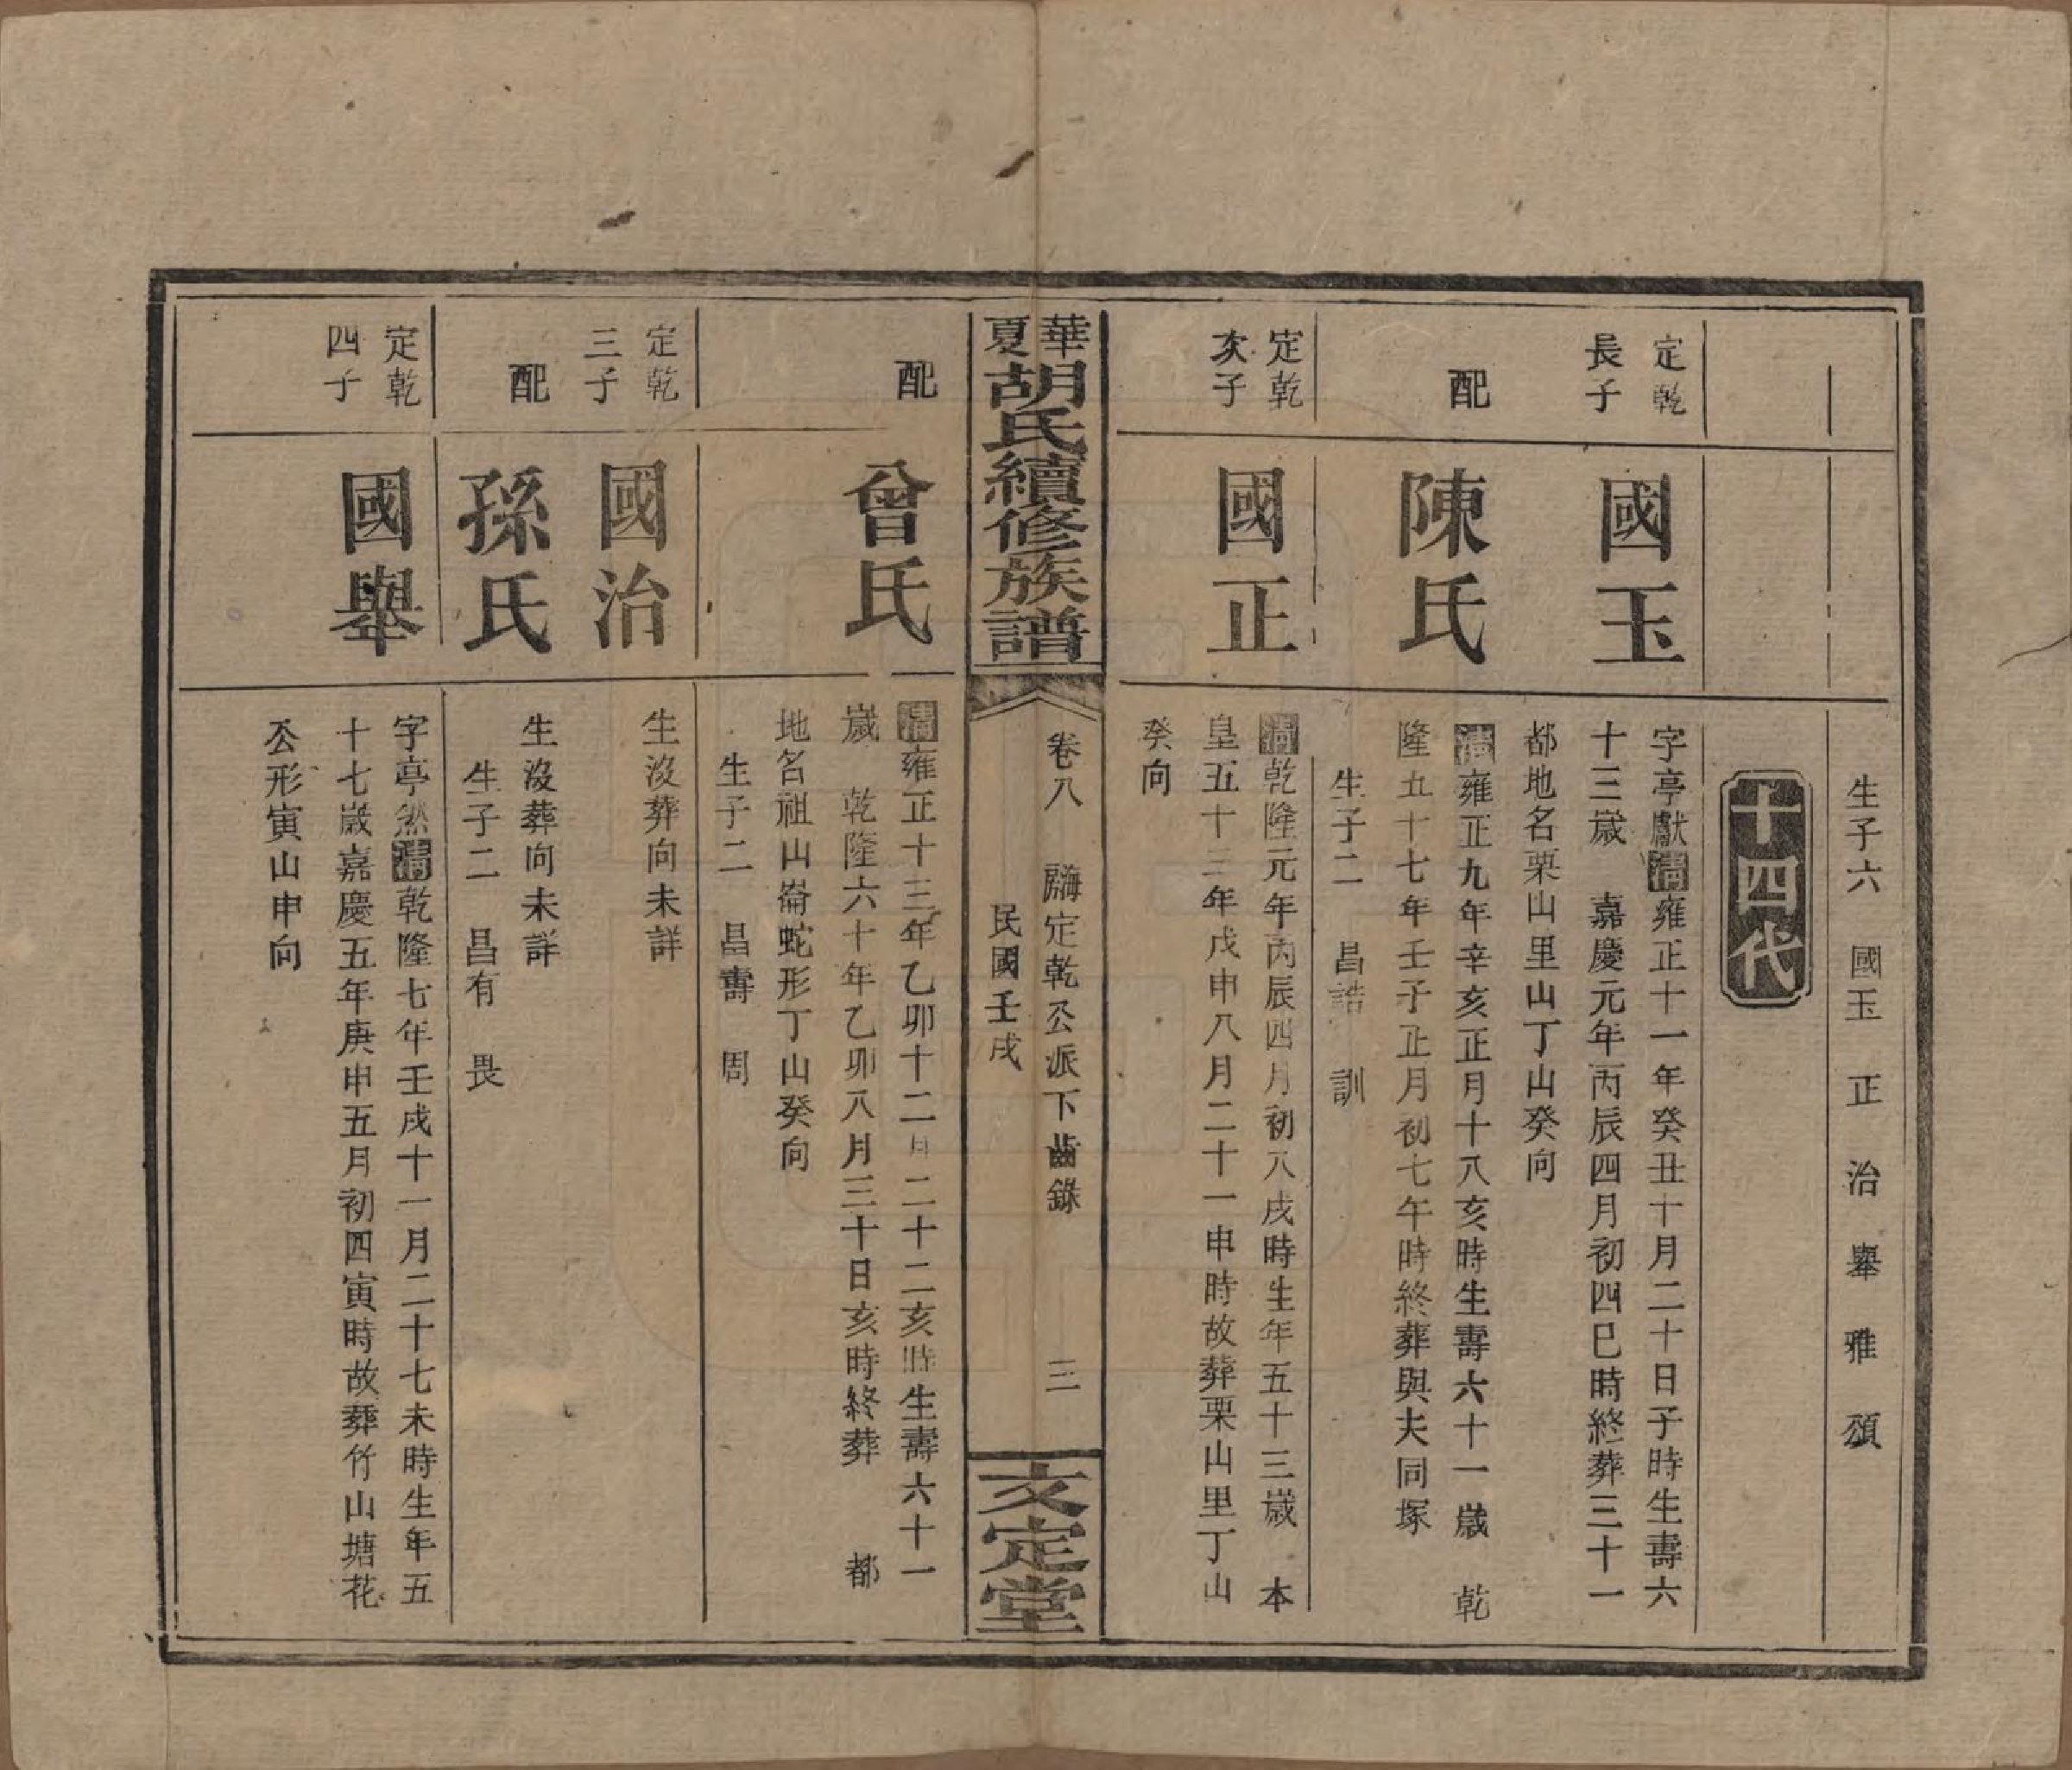 生子六　國玉　正　治　舉　雅　頌
十四代
定乾
長子
國玉
字亭獻清雍正十一年癸丑十月二十日子時生壽六
十三歲　嘉慶元年丙辰四月初四巳時終葬三十一
都地名栗山里山丁山癸向
配
陳氏
清雍正九年辛亥正月十八亥時生壽六十一歲　乾
隆五十七年壬子正月初七午時終葬與夫同塚
生子二　昌誥　訓
定乾
次子
國正
清乾隆元年丙辰四月初八戌時生年五十三歲　本
皇五十三年戊申八月二十一申時故葬栗山里丁山
癸向
華夏胡氏續修族譜
卷八　海房定乾公派下齒錄　三
民國壬戌
文定堂
配
曾氏
清雍正十三年乙卯十二月二十二亥時生壽六十一
歲　乾隆六十年乙卯八月三十日亥時終葬　都
地名祖山崙蛇形丁山癸向
生子二　昌壽　周
定乾
三子
國治
生沒葬向未詳
配
孫氏
生沒葬向未詳
生子二　昌有　畏
定乾
四子
國舉
字亭然清乾隆七年壬戌十一月二十七未時生年五
十七歲嘉慶五年庚申五月初四寅時故葬竹山塘花
公形寅山申向